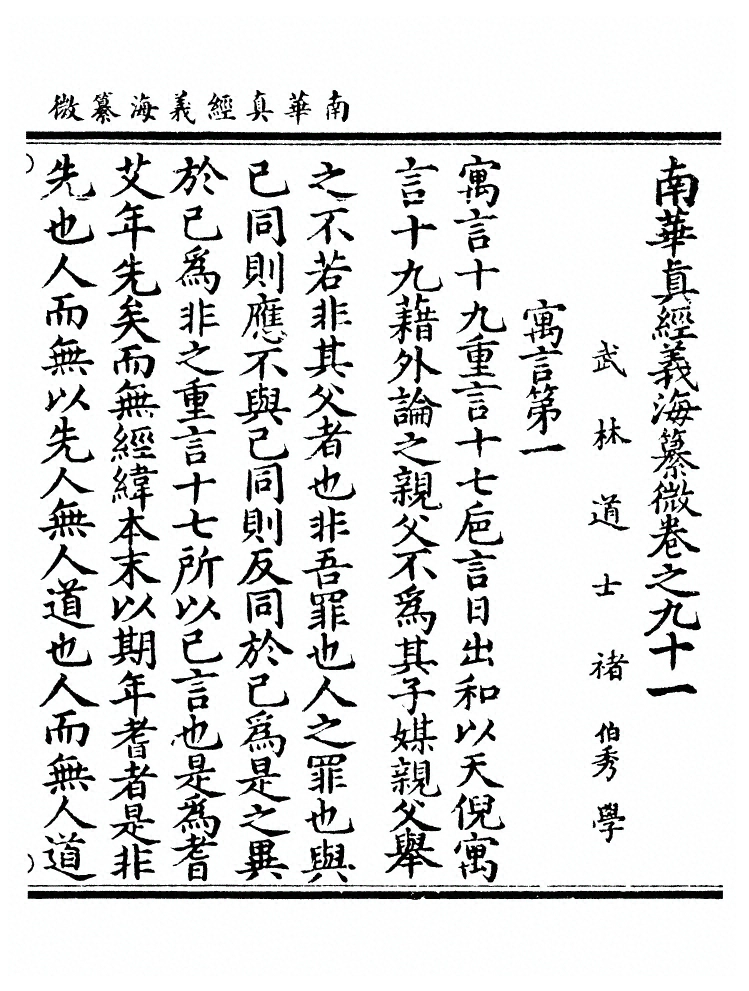 南華真經義海纂微
南華真經義海纂微卷之九十一
武林道士褚伯秀學
寓言第一
寓言十九重言十七巵言日出和以天倪寓
言十九藉外論之親父不爲其子媒親父舉
之不若非其父者也非吾罪也人之罪也與
已同則應不與已同則反同於已爲是之異
於已爲非之重言十七所以已言也是爲耆
艾年先矣而無經緯本末以期年耆者是非
先也人而無以先人無人道也人而無人道